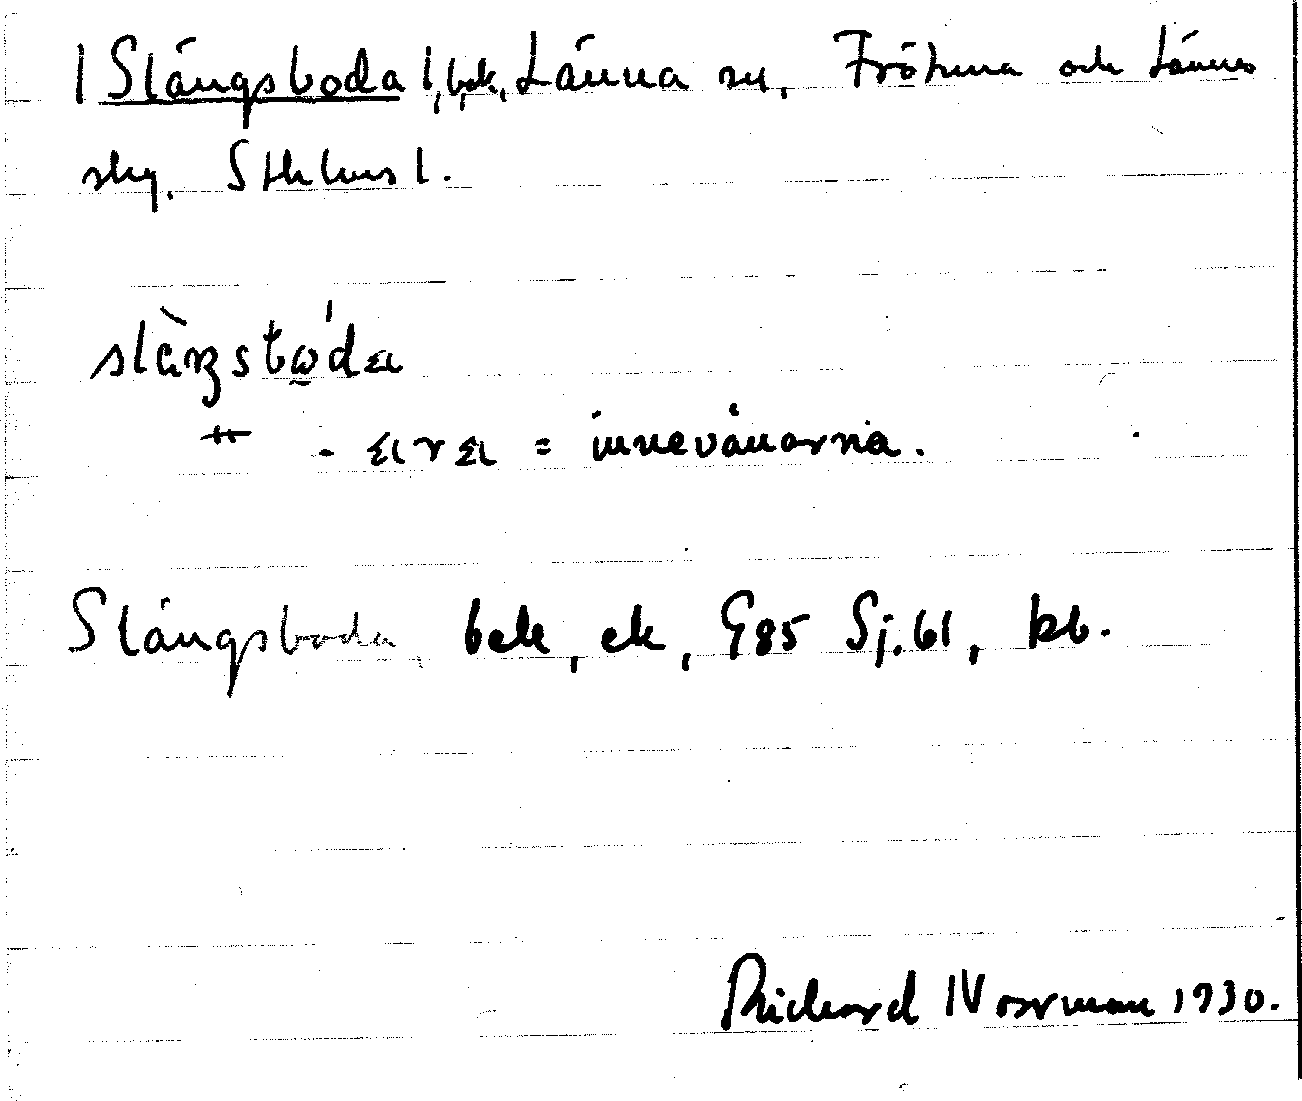 1 Slängsboda 1, bek, Länna sn, Frötuna och Länna
skg. Sthlms l.
slàŋstώ̱da
" - ara = innevånarna.
Slängsboda, bek, ek, G85 Sj.61, kb.
Richard Norrman 1930.